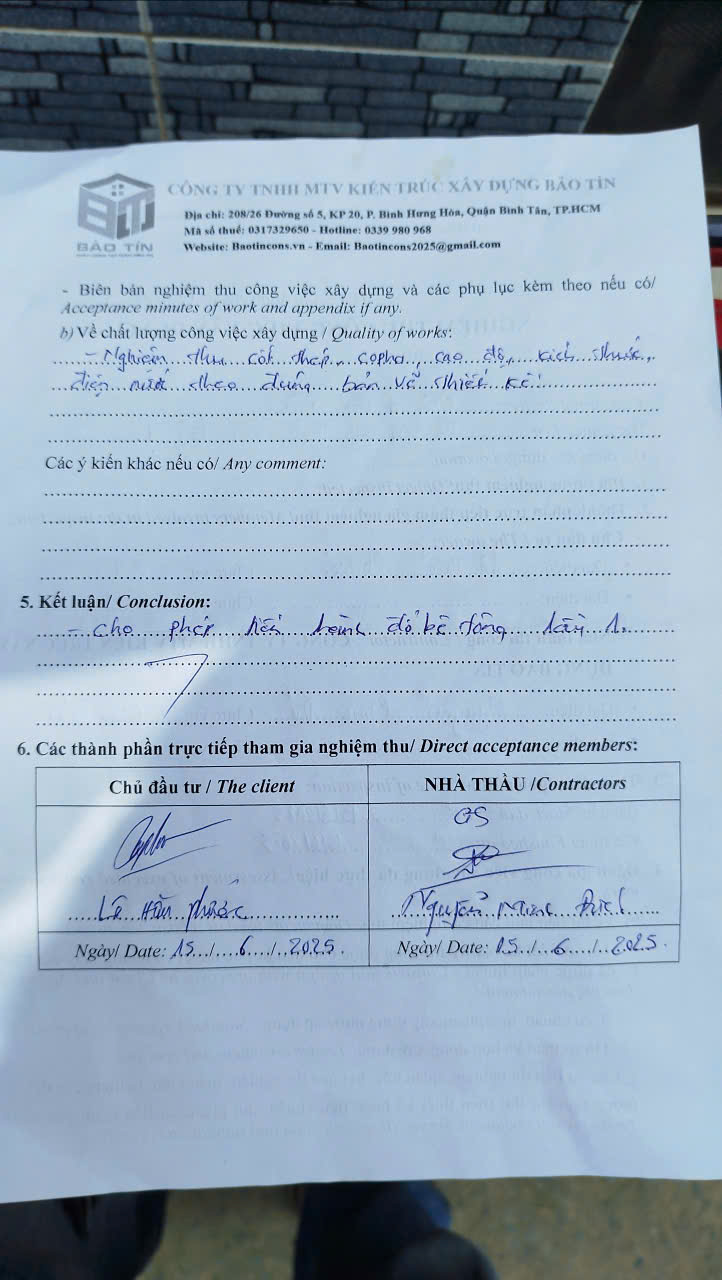 BẢO TÍN
CÔNG TY TNHH MTV KIẾN TRÚC XÂY DỰNG BẢO TÍN
Địa chỉ: 208/26 Đường số 5, KP 20, P. Bình Hưng Hòa, Quận Bình Tân, TP.HCM
Mã số thuế: 0317329650 - Hotline: 0339 980 968
Website: Baotincons.vn - Email: Baotincons2025@gmail.com
- Biên bản nghiệm thu công việc xây dựng và các phụ lục kèm theo nếu có/
Acceptance minutes of work and appendix if any.
b) Về chất lượng công việc xây dựng / Quality of works:
- Nghiệm thu cốt thép, copha, cao độ, kích thước,
điện nước theo đúng bản vẽ thiết kế.
Các ý kiến khác nếu có/ Any comment:
5. Kết luận/ Conclusion:
- Cho phép tiến hành đổ bê tông lần 1.
6. Các thành phần trực tiếp tham gia nghiệm thu/ Direct acceptance members:
Chủ đầu tư / The client
NHÀ THẦU /Contractors
Lê Hữu Phước
Nguyễn Minh
Ngày/ Date: 15/6/2025.
Ngày/ Date: 15/6/2025.